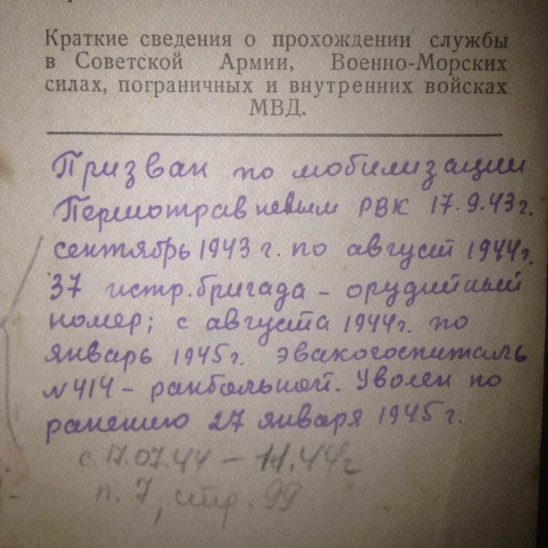 Краткие сведения о прохождении службы
в Советской Армии, Военно-Морских
силах, пограничных и внутренних войсках
МВД.
Призван по мобилизации
РВК 17.9.43г.
сентябрь 1943 г. по август 1944г.
37 истр. бригада – орудийный
номер; с августа 1944г. по
январь 1945г. эвакогоспиталь
№414 – ранбольной. Уволен по
ранению 27 января 1945г.
с 17.07.44 – 11.44г
п. 7, стр. 99